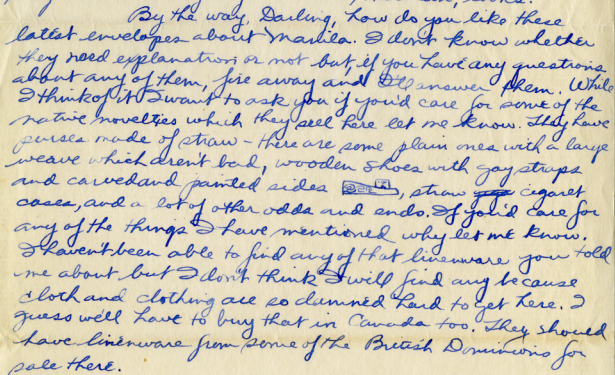 By the way, Darling, how do you like these
lattest envelopes about Manila. I don't know whether
they need explanation or not but, if you have any questions
about any of them, fire away and I'll answer them. While
I think of it I want to ask you if you'd care for some of the
native novelties which they sell here let me know. They have
purses made of straw – there are some plain ones with a large
weave which aren't bad, wooden shoes with gay straps
and carved and painted sides , straw cigaret
cases, and a lot of other odds and ends. If you'd care for
any of the things I have mentioned why let me know.
I haven't been able to find any of that linenware you told
me about but I don't think I will find any because
cloth and clothing are so damned hard to get here. I
guess we'll have to buy that in Canada too. They should
have linenware from some of the British Dominions for
sale there.